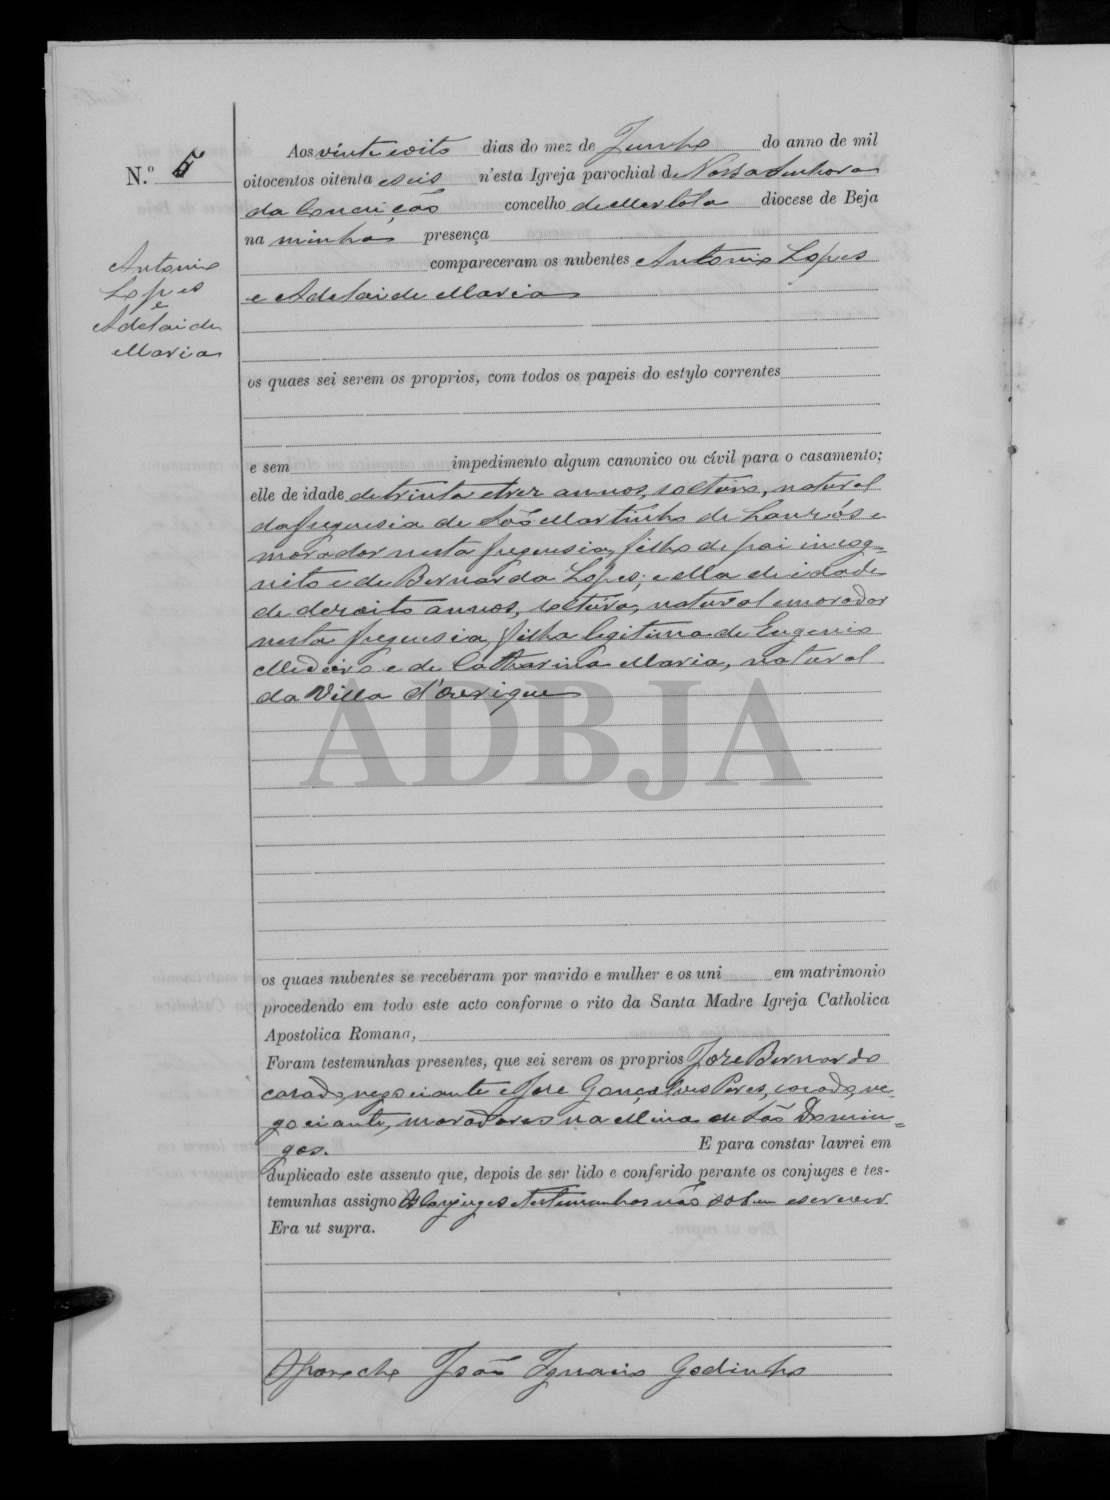 N.º 5
Antonio
Lopes
e
Adelaide
Maria
Aos vinte e oito dias do mez de Junho do anno de mil
oitocentos oitenta e seis n'esta Igreja parochial de Nossa Senhora
da Conceição concelho de Mertola diocese de Beja
na minha presença
compareceram os nubentes Antonio Lopes
e Adelaide Maria
os quaes sei serem os proprios, com todos os papeis do estylo correntes
e sem impedimento algum canonico ou civil para o casamento;
elle de idade de trinta e trez annos, solteiro, natural
da freguesia de São Martinho de e
morador nesta freguesia, filho de pai incog=
nito e de Bernarda Lopes; e ella de idade
de dezoito annos, solteira, natural e morador
nesta freguesia, filha legitima de Eugenio
Medeiro e de Catharina Maria, natural
da Villa d'Ourique
ADBJA
os quaes nubentes se receberam por marido e mulher e os uni em matrimonio
procedendo em todo este acto conforme o rito da Santa Madre Igreja Catholica
Apostolica Romana,
Foram testemunhas presentes, que sei serem os proprios Jose Bernardo
casado, negociante e Jose Gonçalves Peres, casado, ne-
gociante, moradores na Mina de São Domin=
gos. E para constar lavrei em
duplicado este assento que, depois de ser lido e conferido perante os conjuges e tes-
temunhas assigno Os Conjuges e testemunhas não sabem escrever.
Era ut supra.
O Parocho João Ignacio Godinho